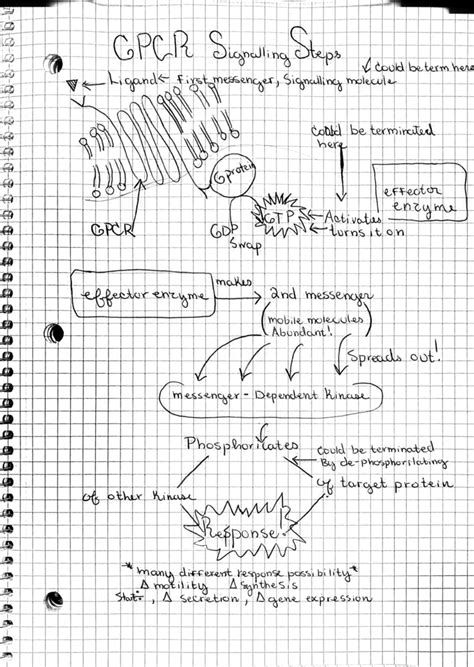 GPCR Signalling Steps
↓ Could be term here
Ligand ← First messenger, Signalling molecule
Could be terminated
here
G protein
effector
enzyme
GTP ← Activates
← turns it on
GPCR
GDP
Swap
effector enzyme makes → 2nd messenger
(mobile molecules
Abundant!)
Spreads out!
messenger - Dependent Kinase
Phosphorilates
Could be terminated
By de-phosphorilating
of target protein
of other Kinase
Response!
*many different response possibility*
Δ motility Δ synthesis
, Δ secretion, Δ gene expression